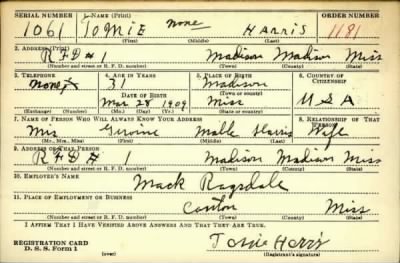 SERIAL NUMBER 1. NAME (Print) ORDER NUMBER
1061 TOMIE none HARRIS 1191
(First) (Middle) (Last)
2. ADDRESS (Print)
R.F.D # 1 Madison Madison Miss
(Number and street or R. F. D. number) (Town) (County) (State)
3. TELEPHONE 4. AGE IN YEARS 5. PLACE OF BIRTH 6. COUNTRY OF CITIZENSHIP
none 31 Madison
DATE OF BIRTH (Town or county)
Mar 28 1909 Miss U S A
(Exchange) (Number) (Mo.) (Day) (Yr.) (State or country)
7. NAME OF PERSON WHO WILL ALWAYS KNOW YOUR ADDRESS 8. RELATIONSHIP OF THAT PERSON
Mrs Harris Wife
(Mr., Mrs., Miss) (First) (Middle) (Last)
9. ADDRESS OF THAT PERSON
R.F.D # 1 Madison Madison Miss
(Number and street or R. F. D. number) (Town) (County) (State)
10. EMPLOYER'S NAME
Mack Ragsdale
11. PLACE OF EMPLOYMENT OR BUSINESS
Canton Miss
(Number and street or R. F. D. number) (Town) (County) (State)
I AFFIRM THAT I HAVE VERIFIED ABOVE ANSWERS AND THAT THEY ARE TRUE.
REGISTRATION CARD
D. S. S. Form 1 (Registrant's signature)